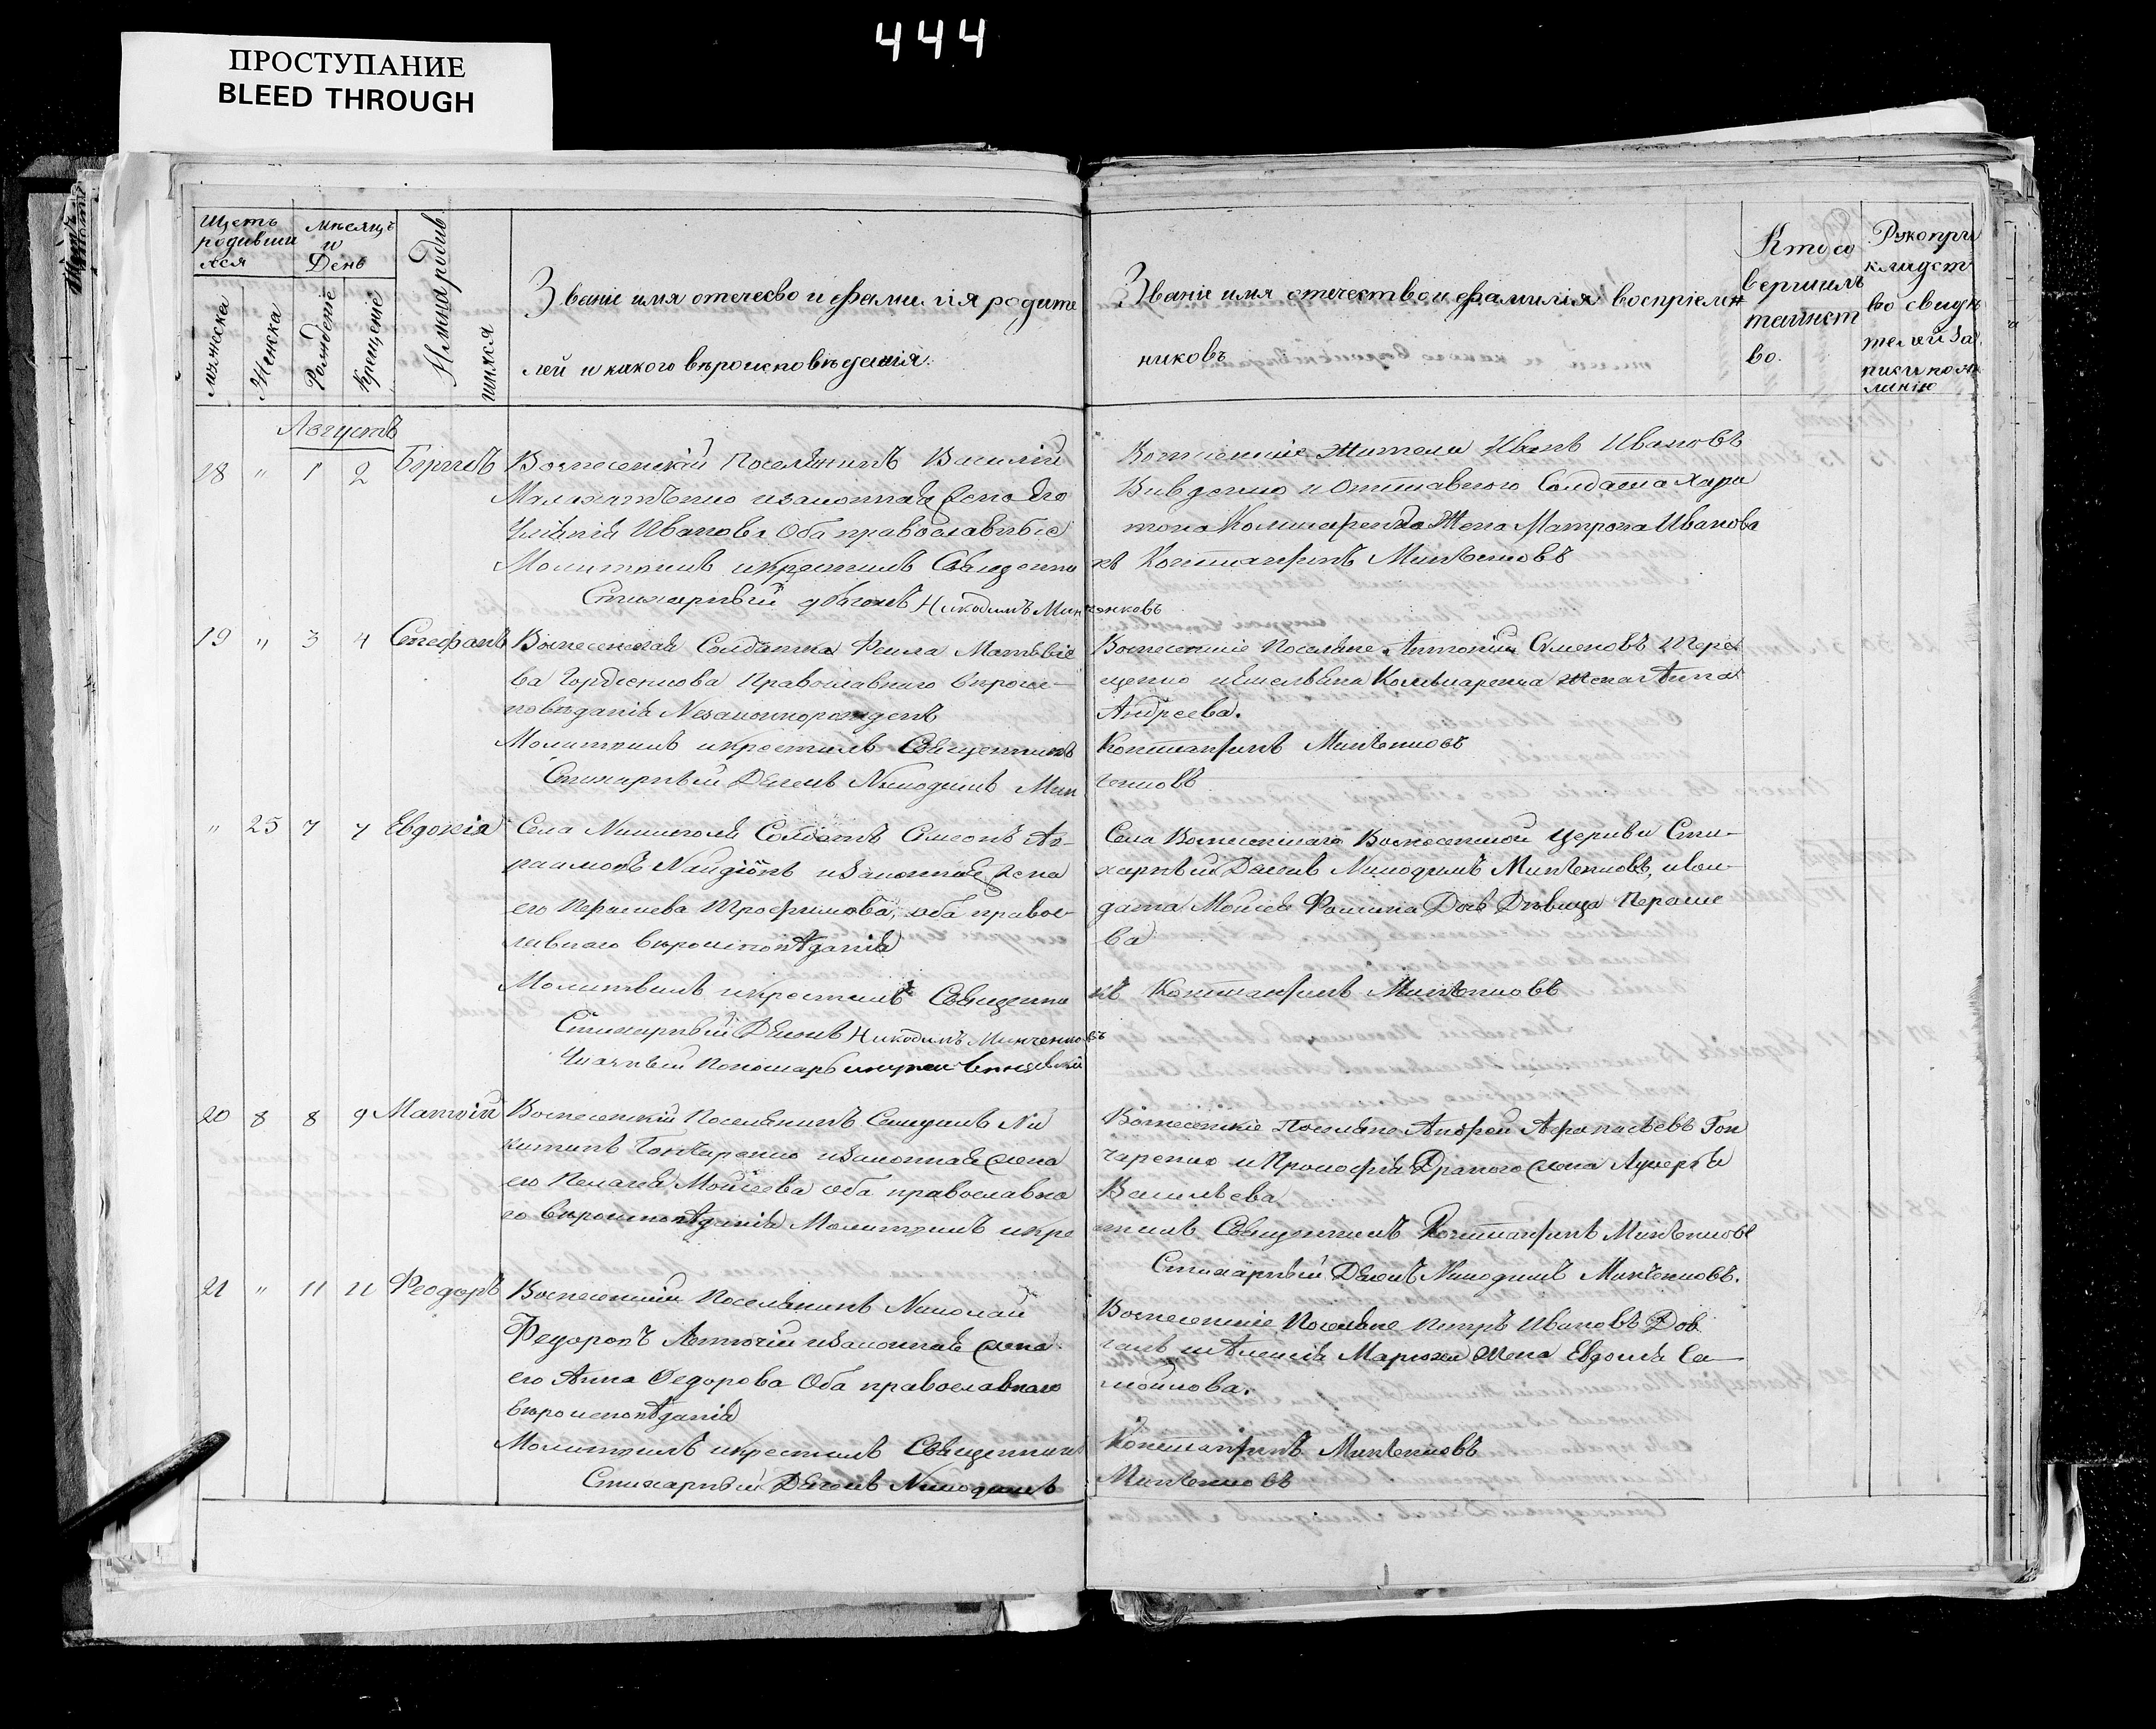 444
ПРОСТУПАНИЕ
BLEED THROUGH
Щетъ родивши яся
мѣсяцъ и День
мужска
Женка
Рождение
Крещение
Имена родив шихся
Званіе имя отечесво и фамилія родите
лей и какого вѣроисповѣданія.
Званіе имя отечество и фамилія воспріемн
никовъ
Кто со
вершилъ
таинст
во.
Рукопри
кладст
во свидѣ
телей за
писи по же
ланію
Августъ
18 " 1 2 Борисъ Вознесенскій Поселянинъ Василій
и законная жена его
Иванова Оба православные
Молитвилъ и крестилъ Священни
Стихарный дьячокъ Никодимъ Мин
Вознесенскіе Жители Иванъ Ивановъ
и Отставного Солдата Хари
тона Комисаренка Жена Матрона Иванова
къ Константинъ Минченковъ
ченковъ
19 " 3 4 Стефанъ Вознесенская Солдатка Матвѣе
ва Гордіенкова Православнаго вѣроис-
повѣданія Незаконнорожденъ
Молитвилъ и крестилъ Священникъ
Стихарный Дьячокъ Никодимъ Мин
Вознесенскіе Поселяне Антоній Семеновъ Тере
щенко и Емельяна Комисаренка жена Анна
Андреева.
Константинъ Минченковъ
ченковъ
" 25 7 7 Евдокія Села Солдатъ Симеонъ Ав-
раамовъ Найдіонъ и законная жена
его Параскева Трофимова, оба правос-
лавнаго вѣроисповѣданія
Молитвилъ и крестилъ Священни
Стихарный Дьячокъ Никодимъ Минченко
Пономарь
Села Вознесенскаго Вознесенской Церкви Сти-
харный Дьячокъ Никодимъ Минченковъ, и сол-
дата Моисея Фомина Дочь Дѣвица Параске
ва
къ Константинъ Минченковъ
въ
20 8 8 9 Матвій Вознесенскій Поселянинъ Ни
китинъ Гончаренко и законная жена
его Пелагія Моисеева оба православна
го вѣроисповѣданія Молитвилъ и кре
Вознесенскіе Поселяне Андрей Афанасьевъ Гон
чаренко и Прокофія Драного жена Лукерья
Васильева
стилъ Священникъ Константинъ Минченковъ
Стихарный Дьячокъ Никодимъ Минченковъ.
21 " 11 11 Феодоръ Вознесенскій Поселянинъ Николай
Федоровъ и законная жена
его Анна Федорова Оба православнаго
вѣроисповѣданія
Молитвилъ и крестилъ Священникъ
Стихарный Дьячокъ Никодимъ
Вознесенскіе Поселяне Петръ Ивановъ Дов
гань и Алексія жена Евдокія Са-
мойлова.
Константинъ Минченковъ
Минченковъ